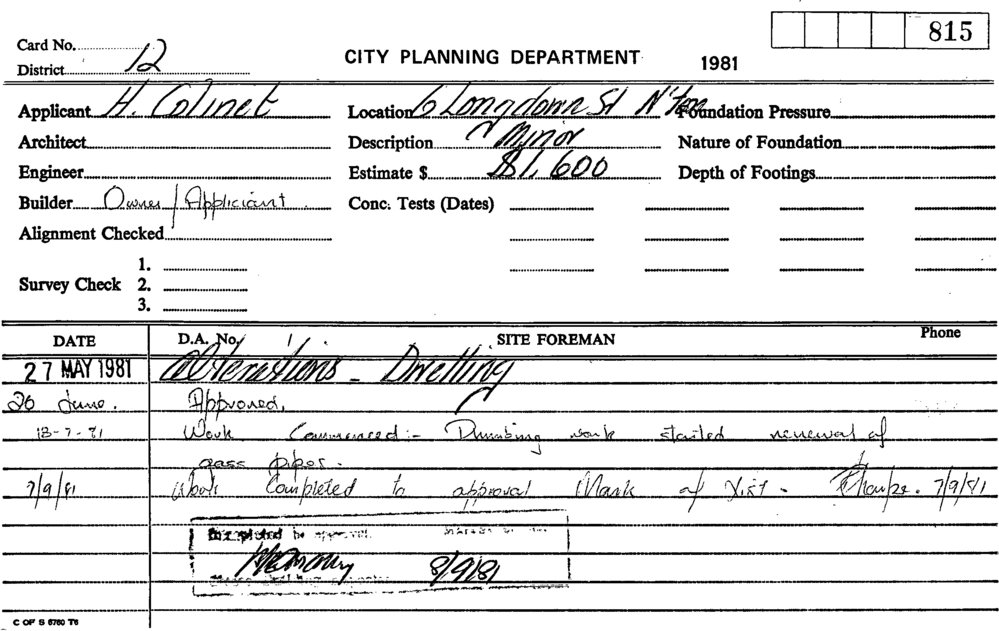 815
Card No.
District 12
CITY PLANNING DEPARTMENT 1981
Applicant H. Colinet Location 6 Longdown St N'ton Foundation Pressure
Architect Description Minor Nature of Foundation
Engineer Estimate $ $1,600 Depth of Footings
Builder Owner/Appliciant Conc. Tests (Dates)
Alignment Checked
1.
Survey Check 2.
3.
DATE D.A. No. SITE FOREMAN Phone
27 MAY 1981 Alterations - Dwelling
26 June. Approved.
13-7-81 Work Commenced:- Plumbing work started renewal of
gass pipes.
7/9/81 Work Completed to approval Mark of 7/9/81
Completed to approval.
8/9/81
C OF S 6760 T6